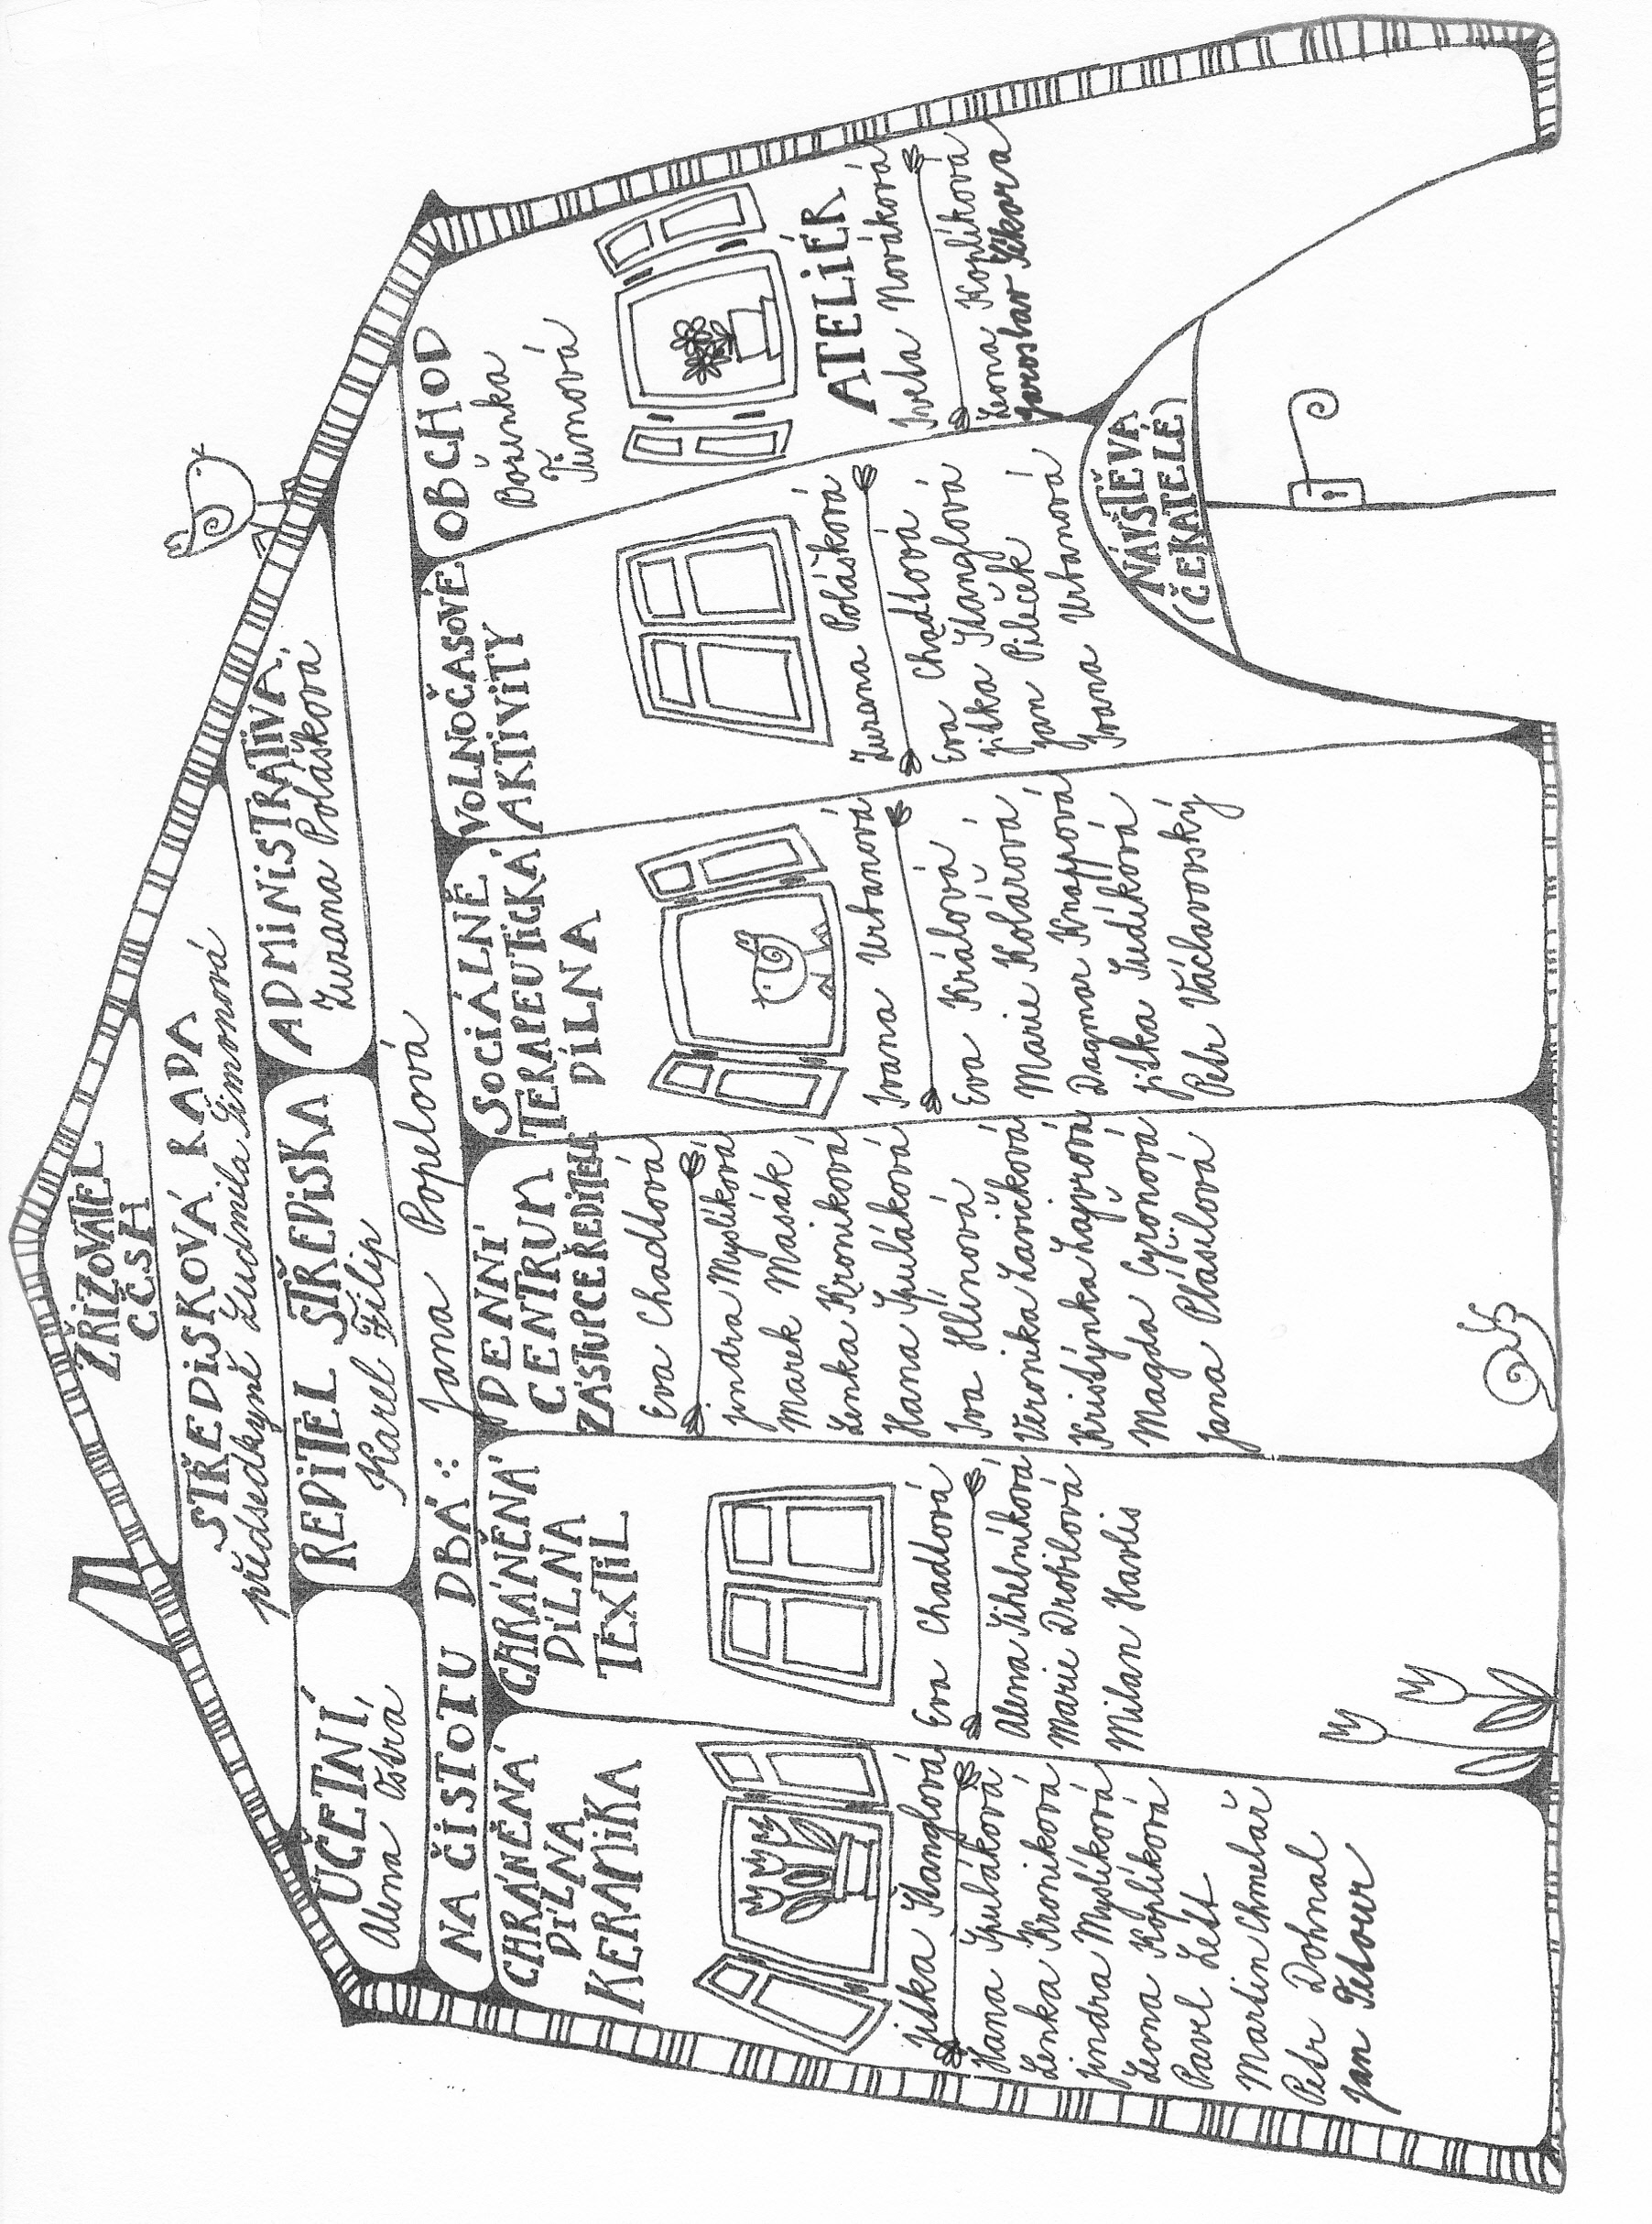 ZŘIZOVATEL
CČSH
STŘEDISKOVÁ RADA
předsedkyně Ludmila Šimonová
ÚČETNÍ,
Alena Ostrá
ŘEDITEL STŘEDISKA
Karel Filip
ADMINISTRATIVA,
Zuzana Polášková
NA ČISTOTU DBÁ: Jana Popelová
CHRÁNĚNÁ
DÍLNA
KERAMIKA
Jitka Štanglová
Hana Špuláková
Lenka Kroniková
Jindra Myslíková
Leona Koplíková
Pavel Lešt
Martin Chmelař
Petr Dohnal
CHRÁNĚNÁ
DÍLNA
TEXTIL
Eva Chadtová
Alena Tihelníková
Marie Drobilová
Milan Havlis
DENNÍ
CENTRUM
ZÁSTUPCE ŘEDITELE
Eva Chadtová
Jindra Myslíková
Marek Masák
Lenka Kroniková
Hana Špuláková
Iva Hlínová
Veronika Zavičková
Kristýnka Zajvrová
Magda Cyroňová
Jana Plášilová
SOCIÁLNĚ
TERAPEUTICKÁ
DÍLNA
Ivana Urbanová
Eva Králová
Marie Kolářová
Dagmar Knappová
Jitka Tudíková
Petr Václavovský
VOLNOČASOVÉ
AKTIVITY
Zuzana Polášková
Eva Chadtová
Jitka Štanglová
Jan Pileček
Ivana Urbanová
OBCHOD
Bórunka
Tůmová
ATELIÉR
Iveta Nováková
Leona Koplíková
Jaroslav Sýkora
NÁVŠTĚVA
(ČEKATELÉ)